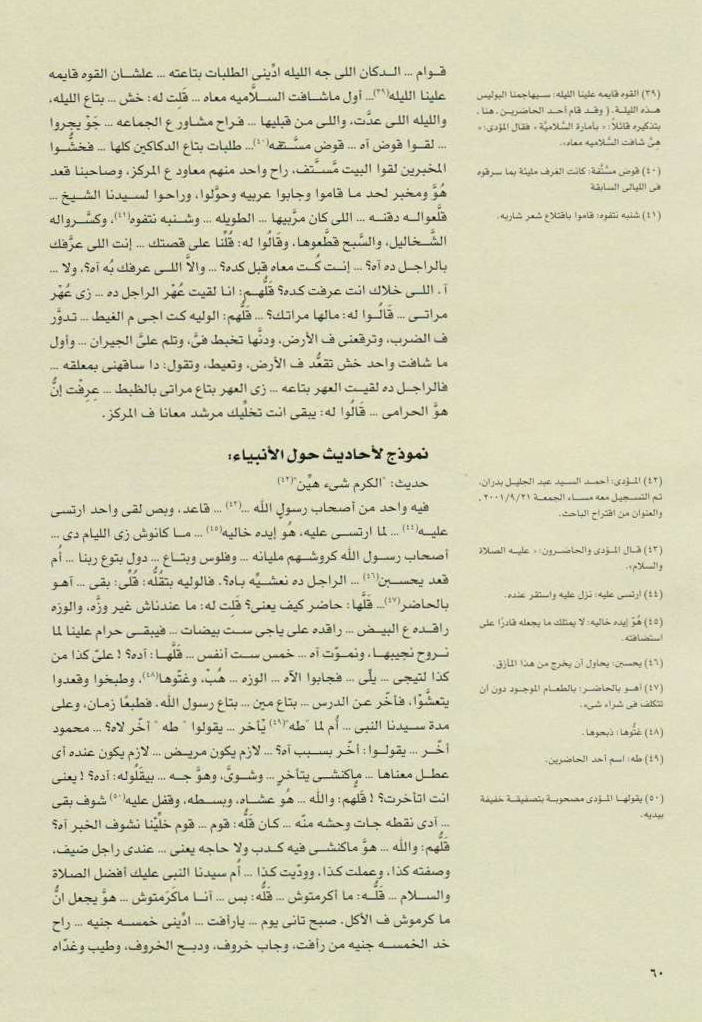 قوام ... الدكان اللى جه الليله ادّينى الطلبات بتاعته ... علشان القوه قايمه
علينا الليله(٣٩)... أول ماشافت السلّاميه معاه ... قلت له: خش ... بتاع الليله،
والليله اللى عدّت، واللى من قبليها ... فراح مشاور ع الجماعه ... جوْ يجروا
... لقوا قوض آه ... قوض مستّفه(٤٠)... طلبات بتاع الدكاكين كلها ... فخشُّوا
المخبرين لقوا البيت مَّستَّف، راح واحد منهم معاود ع المركز، وصاحبنا قعد
هُوَّ ومخبر لحد ما قاموا وجابوا عربيه وحوِّلوا، وراحوا لسيدنا الشيخ ...
قلَّعوالـه دقنـه ... اللى كان مربِّيها ... الطويله ... وشنبه نتفوه(٤١)، وكسَّرواله
الشَّخاليل، والسِّبح قطَّعوها، وقالُوا له: قُلْنا على قصتك ... إنت اللى عرَّفك
بالراجـل ده آه؟ ... إنـت كُـت معاه قبل كده؟ ... والاَّ اللـى عرفك بُه آه؟، ولا ...
آ. اللـى خلاك انت عرفت كده؟ قلُّهـم: انـا لقيت عُهْر الراجل ده ... زى عُهْر
مراتـى ... قالُـوا له: مالها مراتك؟ ... قلُّهم: الوليه كت اجـى م الغيط ... تدوَّر
ف الضرب، وترقعنى ف الأرض، ودنَّها تخبط فىَّ، وتلم علىَّ الجيران ... وأول
ما شافت واحد خش تقعُّد ف الأرض، وتعيط، وتقول: دا ساقهنى بمعلقه ...
فالراجـل ده لقيـت العهر بتاعه ... زى العهر بتاع مراتى بالظبط ... عرفْت إنُّ
هوَّ الحرامى ... قالُوا له: يبقى انت تخلِّيك مرشد معانا ف المركز.
نموذج لأحاديث حول الأنبياء:
حديث: "الكرم شىء هيِّن"(٤٢)
فيه واحد من أصحاب رسول الله ...(٤٣) ... قاعد، وبص لقى واحد ارتسى
عليـه(٤٤) ... لما ارتسـى عليه، هُو إيده خاليه(٤٥) ... مـا كانوش زى الليام دى ...
أصحاب رسـول الله كروشـهم مليانه ... وفلوس وبتاع ... دول بتوع ربنا ... أُم
قعد يحسـبن(٤٦) ... الراجل ده نعشـيِّه بـاه؟. فالوليه بتقُلُّه: قُلِّى: بقى ... آهـو
بالحاضر(٤٧)... قلَّها: حاضر كيف يعنى؟ قلت له: ما عندناش غير وزَّه، والوزه
راقـده ع البيـض ... راقده على ياجى سـت بيضات ... فيبقـى حرام علينا لما
نـروح نجيبهـا، ونموّت آه ... خمس سـت أنفس ... قلَّهـا: آده؟ ! علىّ كدا من
كدا لتيجى ... يلَّى ... فجابوا الآه ... الوزه ... هُبْ، وغتّوها(٤٨)، وطبخوا وقعدوا
يتعشَّوا، فأخّر عن الدرس ... بتاع مين ... بتاع رسول الله. فطبعًا زمان، وعلى
مدة سـيدنا النبى ... أُم لما "طه"(٤٩) يأخر ... يقولوا " طه " أخّر لاه؟ ... محمود
أخّـر ... يقولـوا: أخّر بسـبب آه؟ ... لازم يكون مريـض ... لازم يكون عنده أى
عطـل معناها ... ماكنشـى يتأخر ... وشـوىَّ، وهوَّ جـه ... بيقلُوله: آده؟ ! يعنى
انت اتأخرت؟ ! قلُّهم: والله ... هُو عشـاه، وبسـطه، وقفل عليه(٥٠) شوف بقى
... آدى نقطه جات وحشه منّه ... كان قلُّه: قوم ... قوم خلِّينا نشوف الخبر آه؟
قلُّهم: والله ... هوَّ ماكنشـى فيه كدب ولا حاجه يعنى ... عندى راجل ضيف،
وصفته كذا، وعملت كذا، وودّيت كذا ... أُم سيدنا النبى عليك أفضل الصلاة
والسـلام ... قلُّـه: ما أكرمتوش ... قلُّه: بس ... آنـا ماكرَمتوش ... هوَّ يجعل انُّ
ما كرموش ف الأكل. صبح تانى يوم ... يارأفت ... ادِّينى خمسـه جنيه ... راح
خد الخمسـه جنيه من رأفت، وجاب خروف، ودبـح الخروف، وطيب وغدّاه
(٣٩) القوه قايمه علينا الليله: سـيهاجمنا البوليس
هـذه الليلـة. ( وقـد قام أحـد الحاضريـن ـ هنا ـ
بتذكيره قائلاً: « بأمارة السَّلاميَّة » فقال المؤدى: «
هىَّ شافت السَّلاميه معاه».
(٤٠) قوض مسَّتَّفة: كانت الغرف مليئة بما سرقوه
فى الليالى السابقة
(٤١) شنبه نتفوه: قاموا باقتلاع شعر شاربه.
(٤٢) المـؤدى: أحمـد السـيد عبد الجليـل بدران،
تم التسجيل معه مسـاء الجمعـة ٢٠٠١/٩/٢١ ،
والعنوان من اقتراح الباحث.
(٤٣) قـال المـؤدى والحاضـرون: « عليـه الصلاة
والسلام».
(٤٤) ارتسى عليه: نزل عليه واستقر عنده.
(٤٥) هُوَّ إيده خاليه: لا يمتلك ما يجعله قادرًا على
استضافته.
(٤٦) يحسبن: يحاول أن يخرج من هذا المأزق.
(٤٧) أهـو بالحاضـر: بالطعـام الموجـود دون أن
نتكلف فى شراء شىء.
(٤٨) غتُّوها: ذبحوها.
(٤٩) طه: اسم أحد الحاضرين.
(٥٠) يقولهـا المـؤدى مصحوبـة بتصفيقـة خفيفة
بيديه.
٦٠